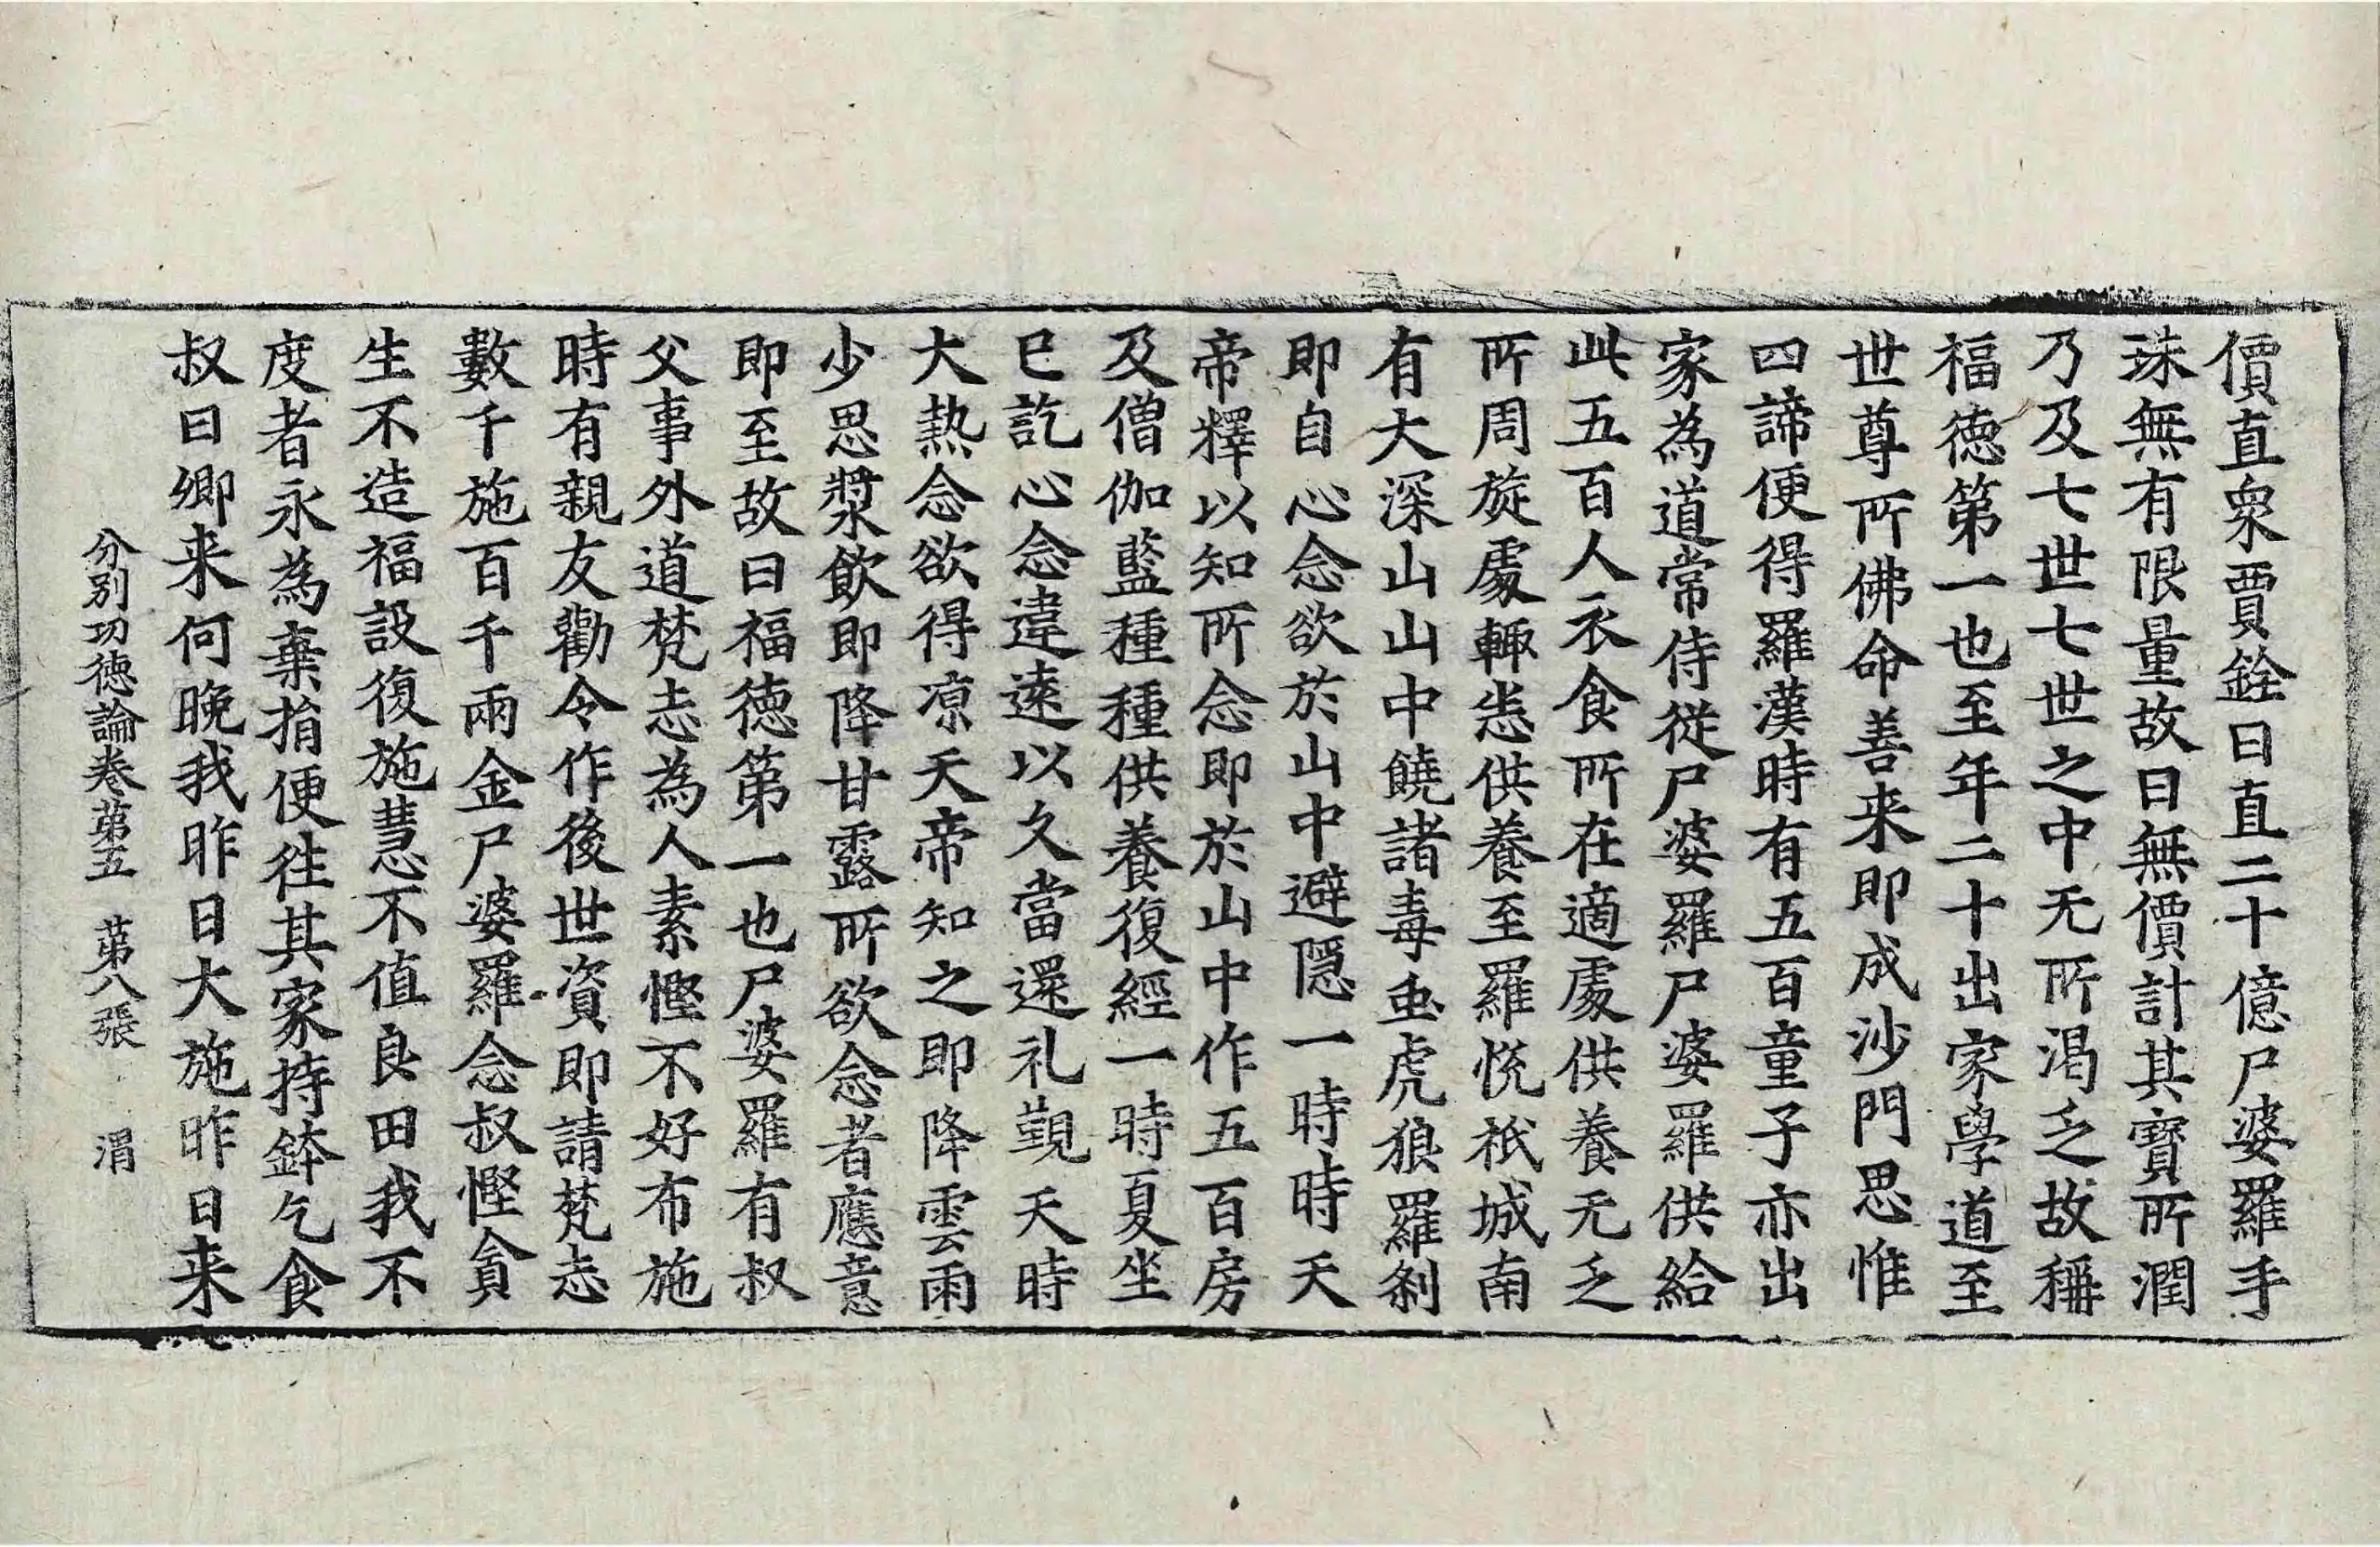 價直衆賈銓曰直二十億尸婆羅手
珠無有限量故曰無價計其寳所潤
乃及七世七世之中无所渴乏故稱
福徳第一也至年二十出家學道至
世尊所佛命善来即成沙門思惟
四諦便得羅漢時有五百童子亦出
家為道常侍從尸婆羅尸婆羅供給
此五百人衣食所在適處供養无乏
所周旋處輙恙供養至羅恱祇城南
有大深山山中饒諸毒䖝虎狼羅刹
即自心念欲於山中避隠一時時天
帝釋以知所念即於山中作五百房
及僧伽藍種種供養復經一時夏坐
已訖心念違逺以久當還礼覲天時
大熱念欲得凉天帝知之即降雲雨
少思漿飲即降甘露所欲念者應意
即至故曰福徳第一也尸婆羅有叔
父事外道梵志為人素慳不好布施
時有親友勸令作後世資即請梵志
數千施百千兩金尸婆羅念叔慳貪
生不造福設復施慧不值良田我不
度者永為棄捐便往其家持鉢乞食
叔曰卿来何晚我昨日大施昨日来
分别功徳論卷第五　第八張　渭